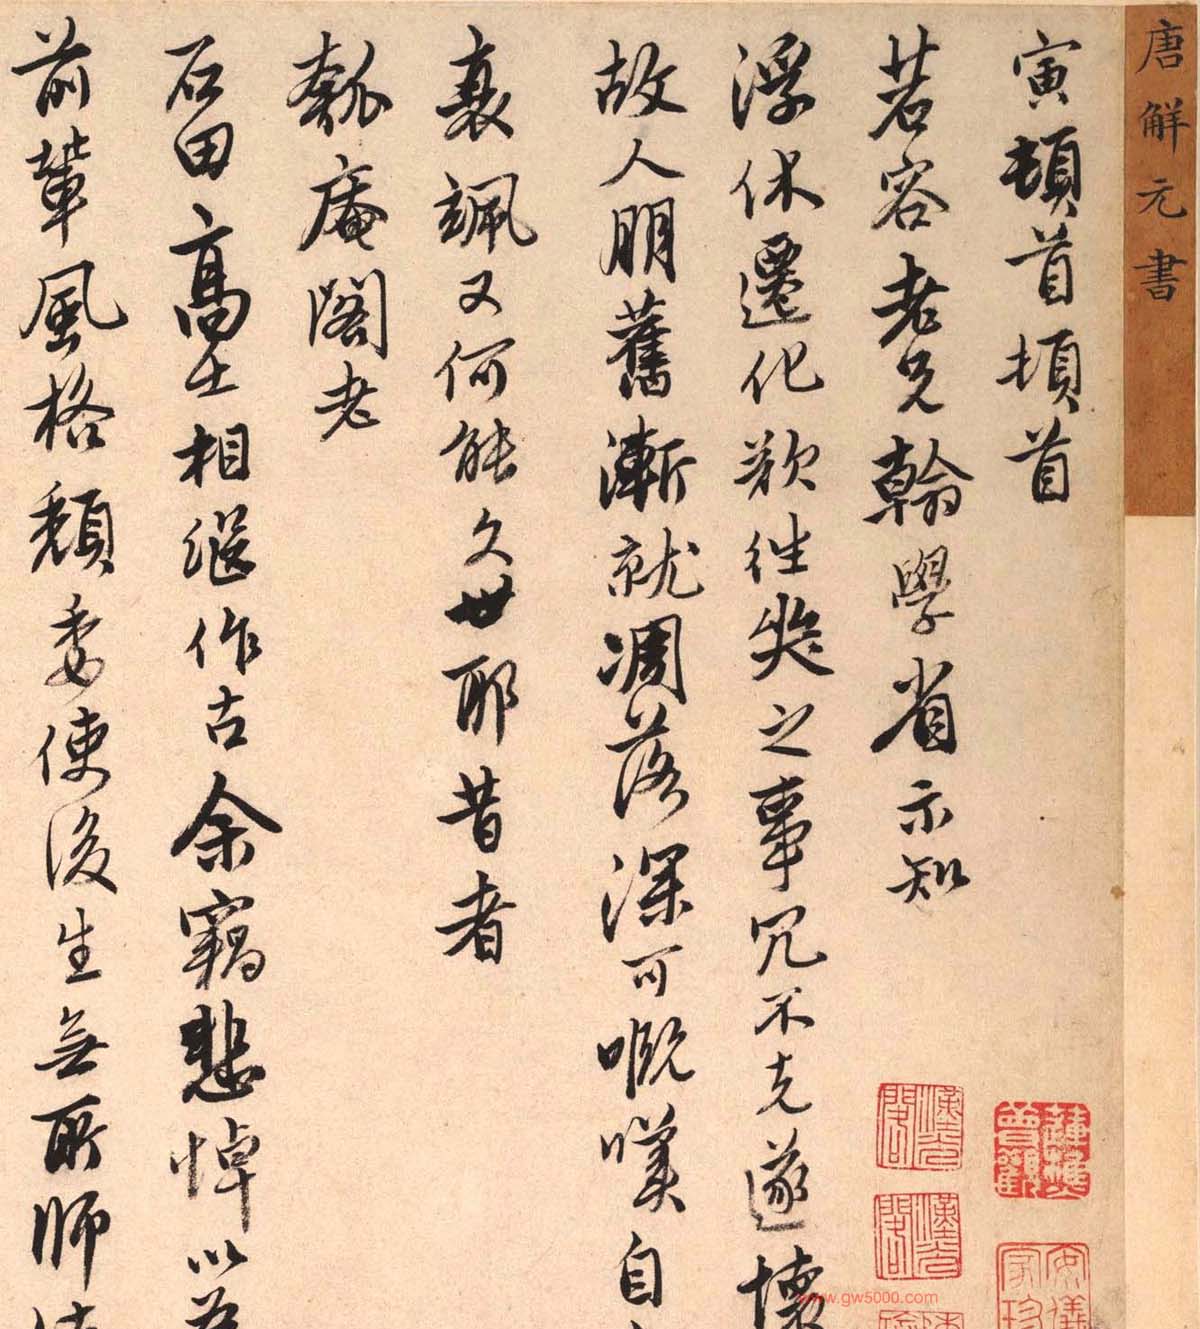 唐解元書
寅頓首頓首
若容老兄翰學省示知
浮休遷化欲往奠之事冗不克遂懷
故人朋舊漸就凋落深可嘅嘆自
衰颯又何能久世耶昔者
瓠庵閣老
石田高士相繼作古余竊悲悼以為
前輩風格頹委使後生無所師法
蓮樵曾觀
安儀家珍
www.gw5000.com